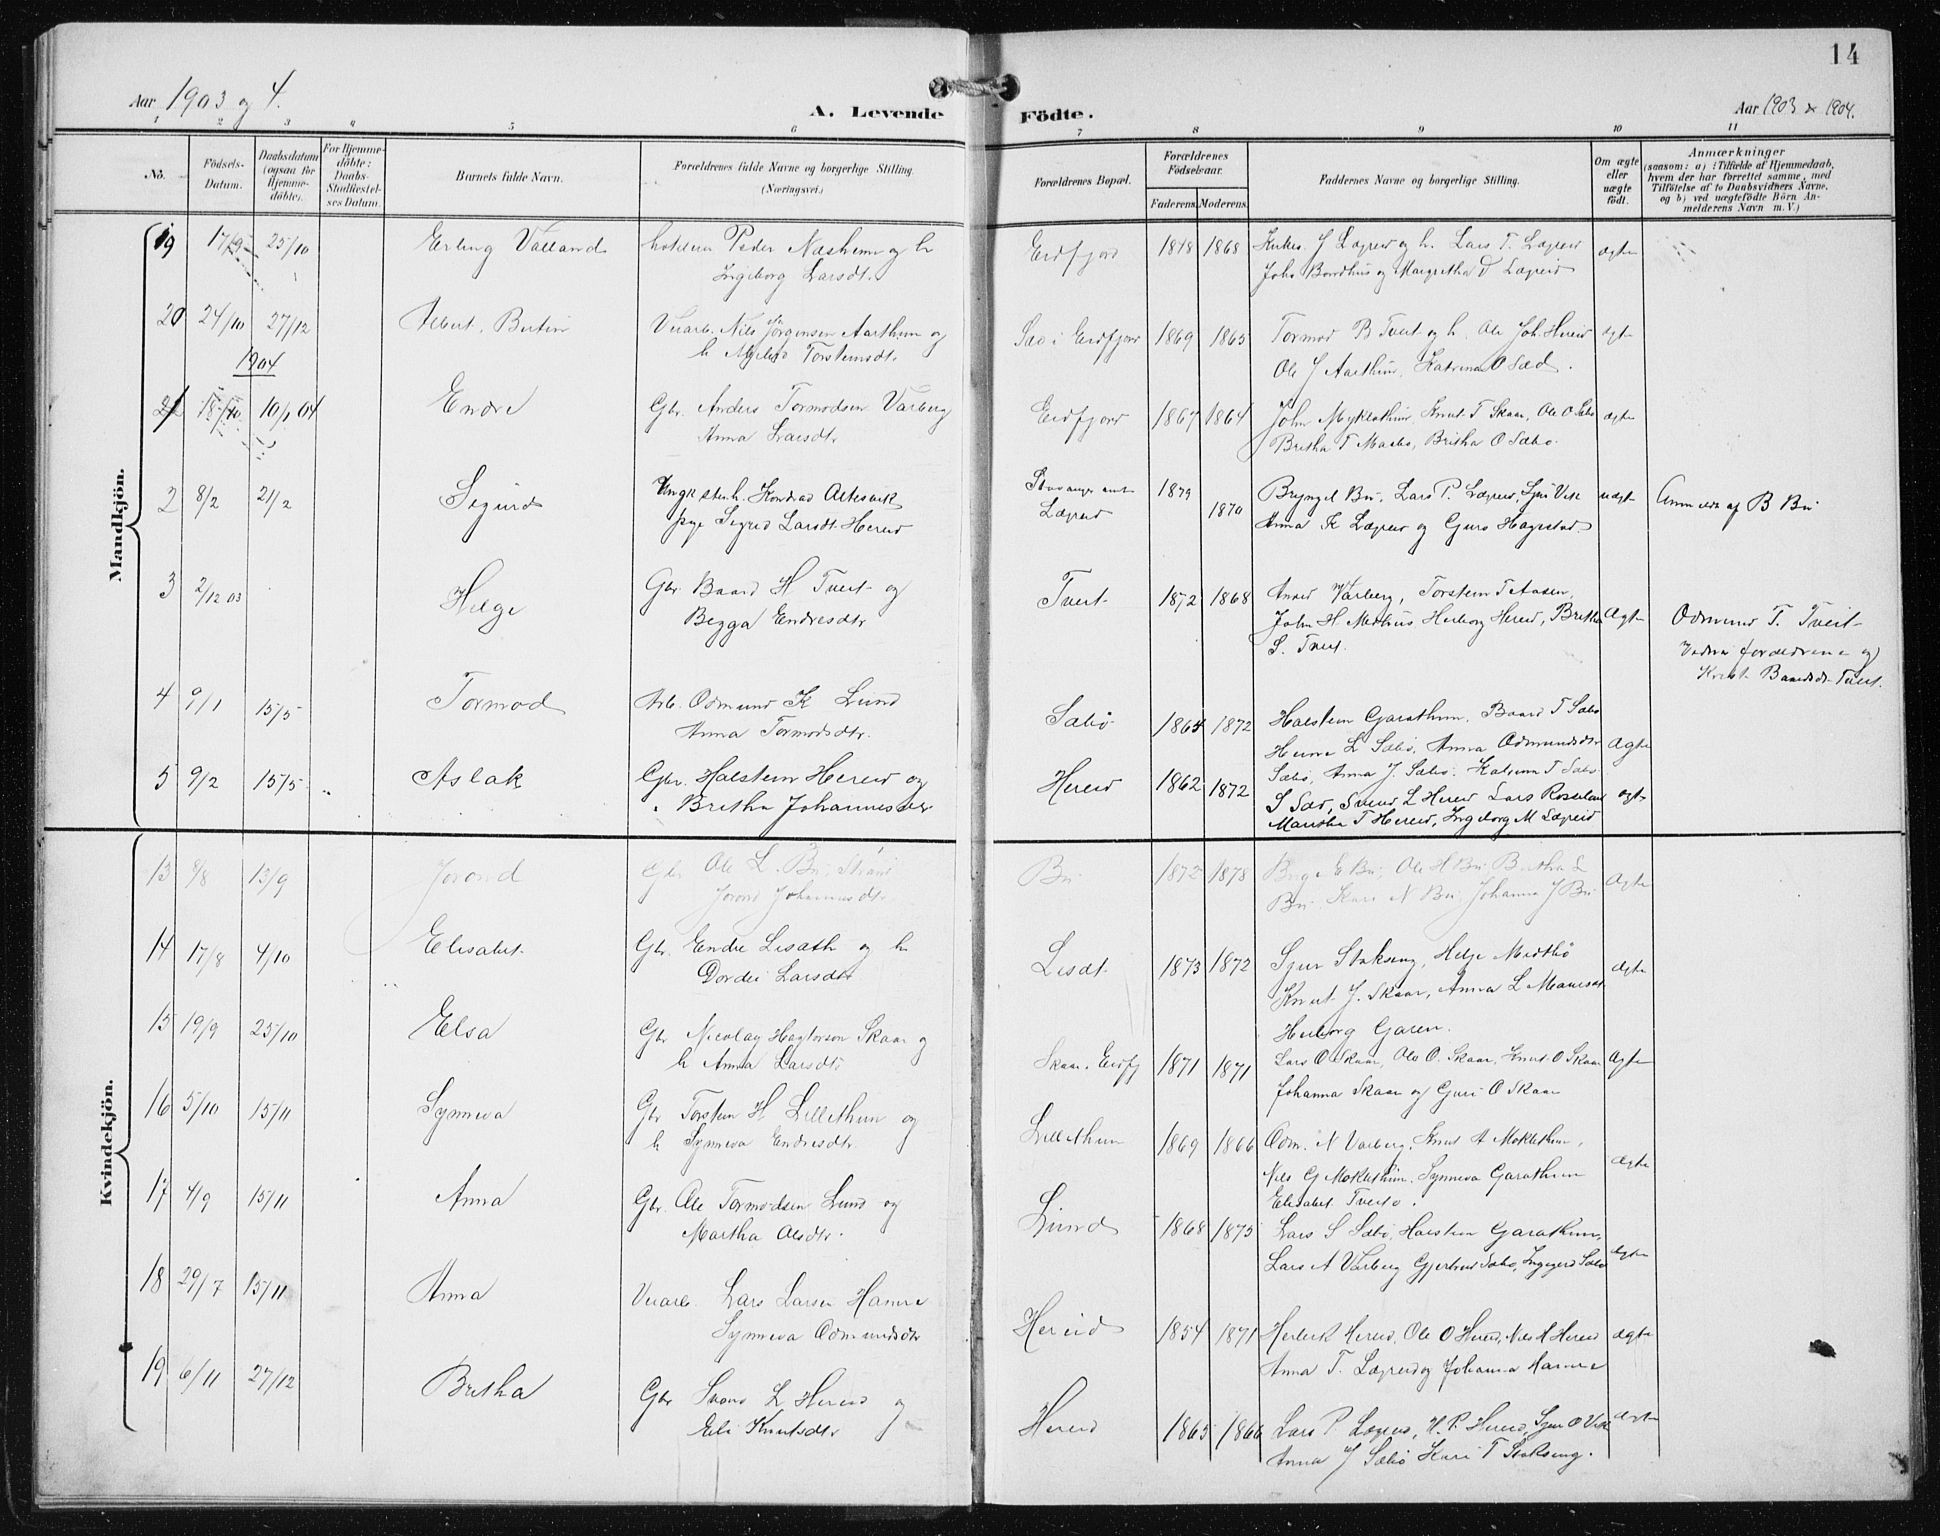 14
Aar 1903 og 4.
A. Levende
Födte.
Aar 1903 & 1904.
1 2 3 4 5 6
7 8 9 10 11
No.
Födsels-
Datum.
Daabsdatum
(ogsaa for
Hjemme-
döbte).
For Hjemme-
döbte:
Daabs-
Stadfæstel-
ses Datum.
Barnets fulde Navn.
Forældrenes fulde Navne og borgerlige Stilling.
(Næringsvei.)
Forældrenes Bopæl.
Forældrenes
Födselsaar.
Faderens. Moderens.
Faddernes Navne og borgerlige Stilling.
Om ægte
eller
uægte
födt.
Anmærkninger
(saasom: a) i Tilfælde af Hjemmedaab,
hvem der har forrettet samme, med
Tilföielse af to Daabsvidners Navne.
og b) ved uægtefödte Börn An-
melderens Navn m. V.)
Mandkjön.
19 17/9 25/10 Erling Valland Peder Næsheim og h Eidfjord 1848 1868 Kirkes. J Lægreid og h. Lars T. Lægreid ægte
Ingeborg Larsdtr. Joh. Bondhus og Margretha D Lægreid
20 24/10 27/12 Albert. Bertin Veiarb. Nils Jörgensen Aarthun og Sæd i Eidfjord 1869 1865 Tormod B Tveit og h. Ole Joh. Hereid ægte
h Torsteinsdtr. Ole J Aarthun, Katrina O Sæd.
1904
21 18/10 10/1 04 Endre Gbr. Anders Tormodsen Varberg Eidfjord 1867 1864 John Myklathun, Knut T Skaar, Ole O Sæbö ægte
Anna Larsdtr. Britha T Maabö, Britha O Sæbö.
2 8/2 21/2 Sigurd Ungk stenh. Konrad Altesvik Stavanger amt 1879 Bryngel Bu, Lars P. Lægreid, Sjur Vik uægt Anmeldt af B Bu
pige Sigrid Larsdt. Hereid Lægreid 1870 Anna K Lægreid og Guro Hagestad.
3 2/12 03 Helge Gbr. Baard H Tveit og Tveit 1872 1868 Varberg, Torstein T Aasen,
Begga Endresdtr John H Medhus Herborg Hereid, Britha Ægte Odmund T. Tveit
S. Tveit. Vidner forældrene og
Baardsdt. Tveit.
4 9/1 15/5 Tormod Arb. Odmund K Lund Sæbö 1864 1872 Halstein Garathun, Baard T Sæbö
Anna Tormodsdtr. L Sæbö, Anna Odmundsdtr Ægte
5 9/2 15/5 Aslak Gbr. Halstein Hereid og Hereid 1862 1872 Sæbö, Anna J. Sæbö. Katrina T Sæbö
Britha Johannesdtr S Sæd, Svend L Hereid Lars Roseland ægte
Martha T Hereid, Ingeborg M Lægreid
Kvindekjön.
13 8/8 13/9 Jorond Gbr Ole L. Bu, Bu 1872 1878 E Bu, Ole H Bu, Britha L Ægte
Jorond Johannesdtr. Bu, Kari N Bu, Johanna J Bu
14 17/8 4/10 Elisabet. Gbr. Endre Lisæth og h Lisæt 1873 1872 Sjur Stokseng, Helje Medthö ægte
Dordei Larsdtr Knut J. Skaar, Anna L
Herborg Garen.
15 19/9 25/10 Elsa Gbr Nicolay Hagtorson Skaar og Skaar. Eidfj 1871 1871 Lars O Skaar, Ole O. Skaar, Knut O Skaar Ægte
h Anna Larsdtr Johanna Skaar og Guri O Skaar
16 5/10 15/11 Synneva Gbr Torstein H Lillethun og Lillethun 1869 1866 Odm. N Varberg, Knut A Moklethun,
h Synneva Endresdtr Nils G Moklethun. Synneva Garathun ægte
Elisabet Tveito.
17 4/9 15/11 Anna Gbr. Ole Tormodsen Lund og Lund 1868 1875 Lars S Sæbö, Halstein Garathun, ægte
Martha Olsdtr. Lars A Varberg Gjertrud Sæbö, Ingegerd Sæbö
18 29/7 15/11 Anna Veiarb. Lars Larsen Hamre Hereid 1854 1871 Herleik Hereid, Ole O Hereid, Nils H Hereid ægte
Synneva Odmundsdtr Anna T. Lægreid og Johanna Hamre
19 6/11 27/12 Britha Gbr Svend L Hereid og Hereid 1865 1866 Lars P Lægreid, H. P. Hereid, Sjur O Vik ægte
Eli Knutsdtr Anna J Sæbö Kari T Stokseng.